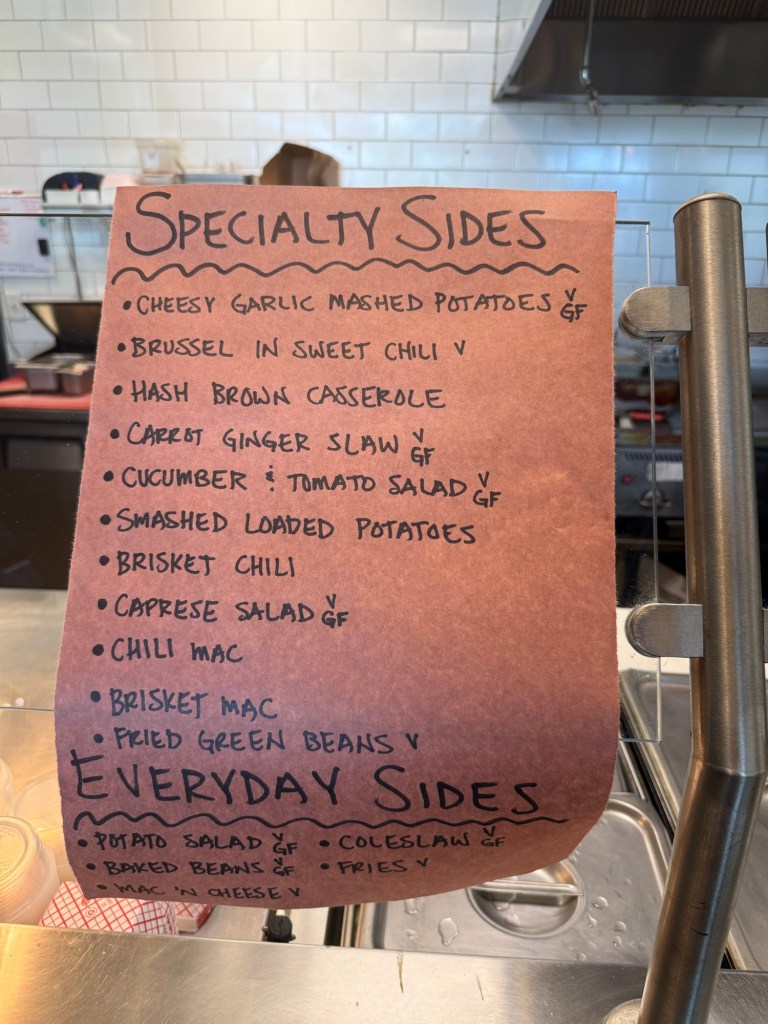 SPECIALTY SIDES
• CHEESY GARLIC MASHED POTATOES V GF
• BRUSSEL IN SWEET CHILI V
• HASH BROWN CASSEROLE
• CARROT GINGER SLAW V GF
• CUCUMBER & TOMATO SALAD V GF
• SMASHED LOADED POTATOES
• BRISKET CHILI
• CAPRESE SALAD V GF
• CHILI MAC
• BRISKET MAC
• FRIED GREEN BEANS V
EVERYDAY SIDES
• POTATO SALAD V GF • COLESLAW V GF
• BAKED BEANS V GF • FRIES V
• MAC 'N CHEESE V